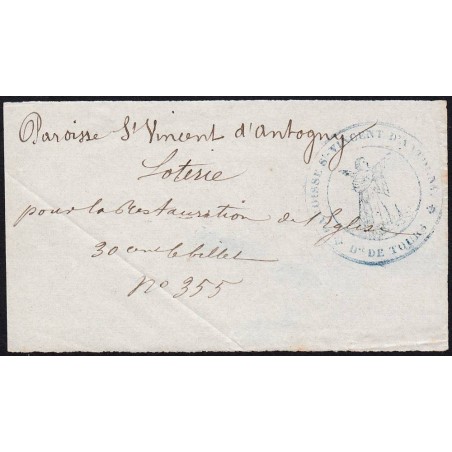 Paroisse St Vincent d'Antogny
Loterie
pour la Restauration de l'Eglise
30 cent le billet
No 355
PAROISSE St VINCENT D'ANTOGNY
Dse DE TOURS